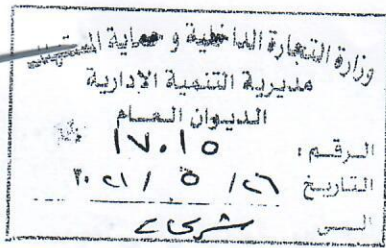 وزارة التجارة الداخلية و حماية المستهلك
مديرية التنمية الادارية
الديوان العام
الرقم : ١٧٠١٥
التاريخ ٢٦ / ٥ / ٢٠٢١
الى